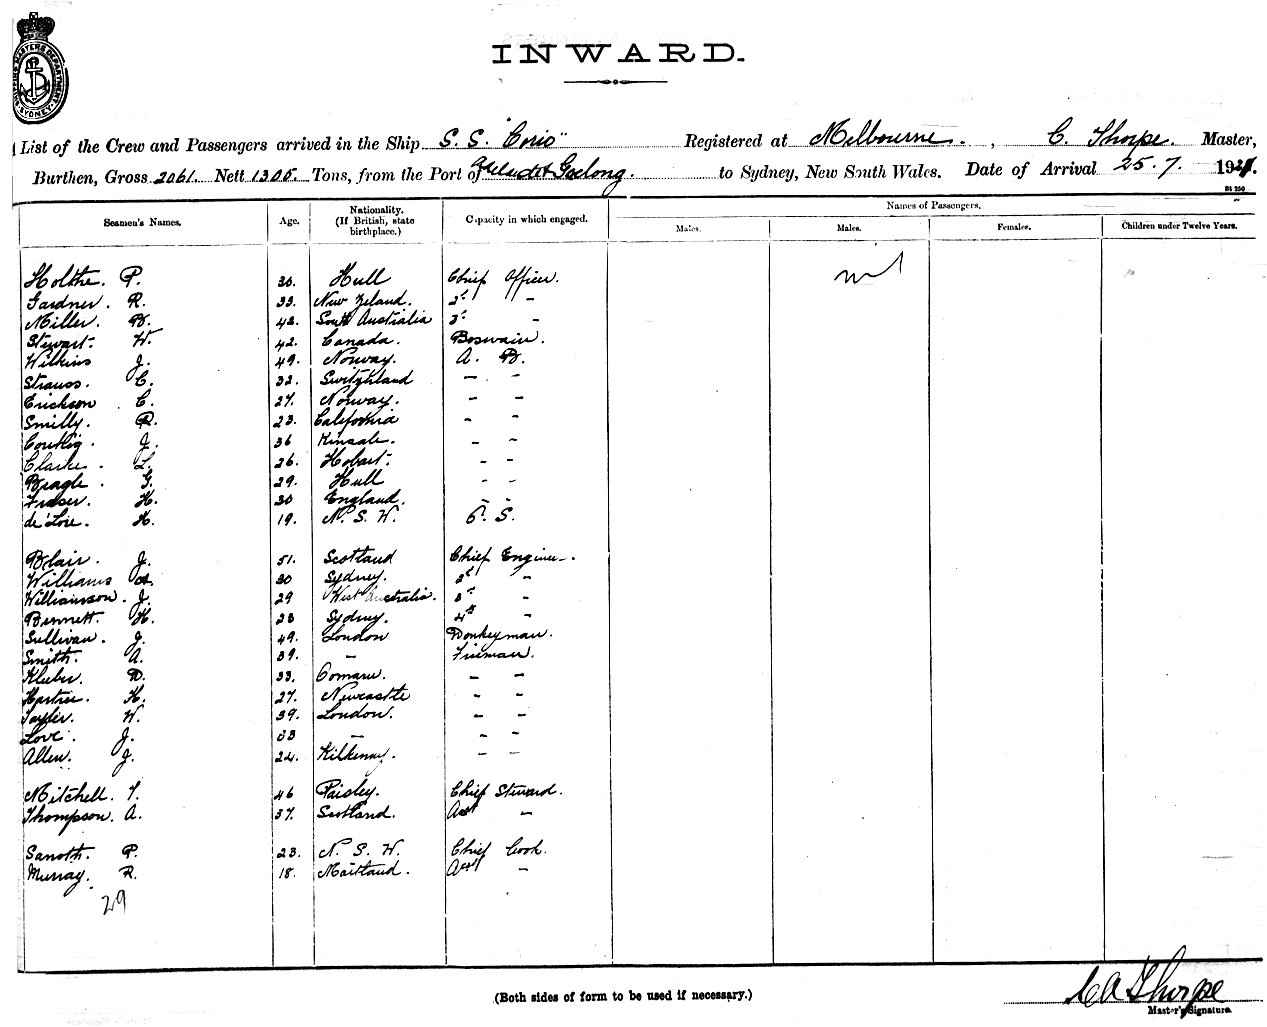 SHIPPING MASTERS DEPARTMENT SYDNEY
INWARD.
List of the Crew and Passengers arrived in the Ship S.S. "Corio" Registered at Melbourne. , C. Thorpe. Master,
Burthen, Gross 2061. Nett 1306. Tons, from the Port of Geelong. to Sydney, New South Wales. Date of Arrival 25.7. 19
Seamen's Names. Age. Nationality. (If British, state birthplace.) Capacity in which engaged. Names of Passengers.
Males. Males. Females. Children under Twelve Years.
nil
Holthe. P. 30. Hull Chief Officer.
Gardner. R. 33. New Zeland. 2d "
Miller. B. 42. South Australia 3d "
Stewart. W. 42. Canada. Boswain.
Wilkins J. 49. Norway. A. B.
Strauss. C. 32. Switzhland - -
Erickson C. 27. Norway. - -
Smilly. R. 23. Calefornia - -
J. 36 Kinsale. - -
Clarke. L. 26. Hobart. - -
Beagle. G. 29. Hull - -
Fraser. H. 30 England. - -
de'Lore. H. 19. N. S. W. O. S.
Blair. J. 51. Scotland Chief Engineer.
Williams A. 30 Sydney. 2d "
Williamson. J. 29 West Australia. 3rd "
Bennett. H. 23 Sydney. 4th "
Sullivan. J. 49. London Donkeyman.
Smith. A. 39. - Fireman.
D. 33. Oomaru. - -
H. 27. Newcastle - -
Tayler. W. 39. London. - -
Love. J. 33 - - -
Allen. J. 24. Kilkenny. - -
Mitchell. T. 46 Paisley. Chief Steward.
Thompson. A. 37. Scotland. Asst -
P. 23. N. S. W. Chief Cook.
Murray. R. 18. Maitland. Asst -
29
(Both sides of form to be used if necessary.)
C A Thorpe
Master's Signature.